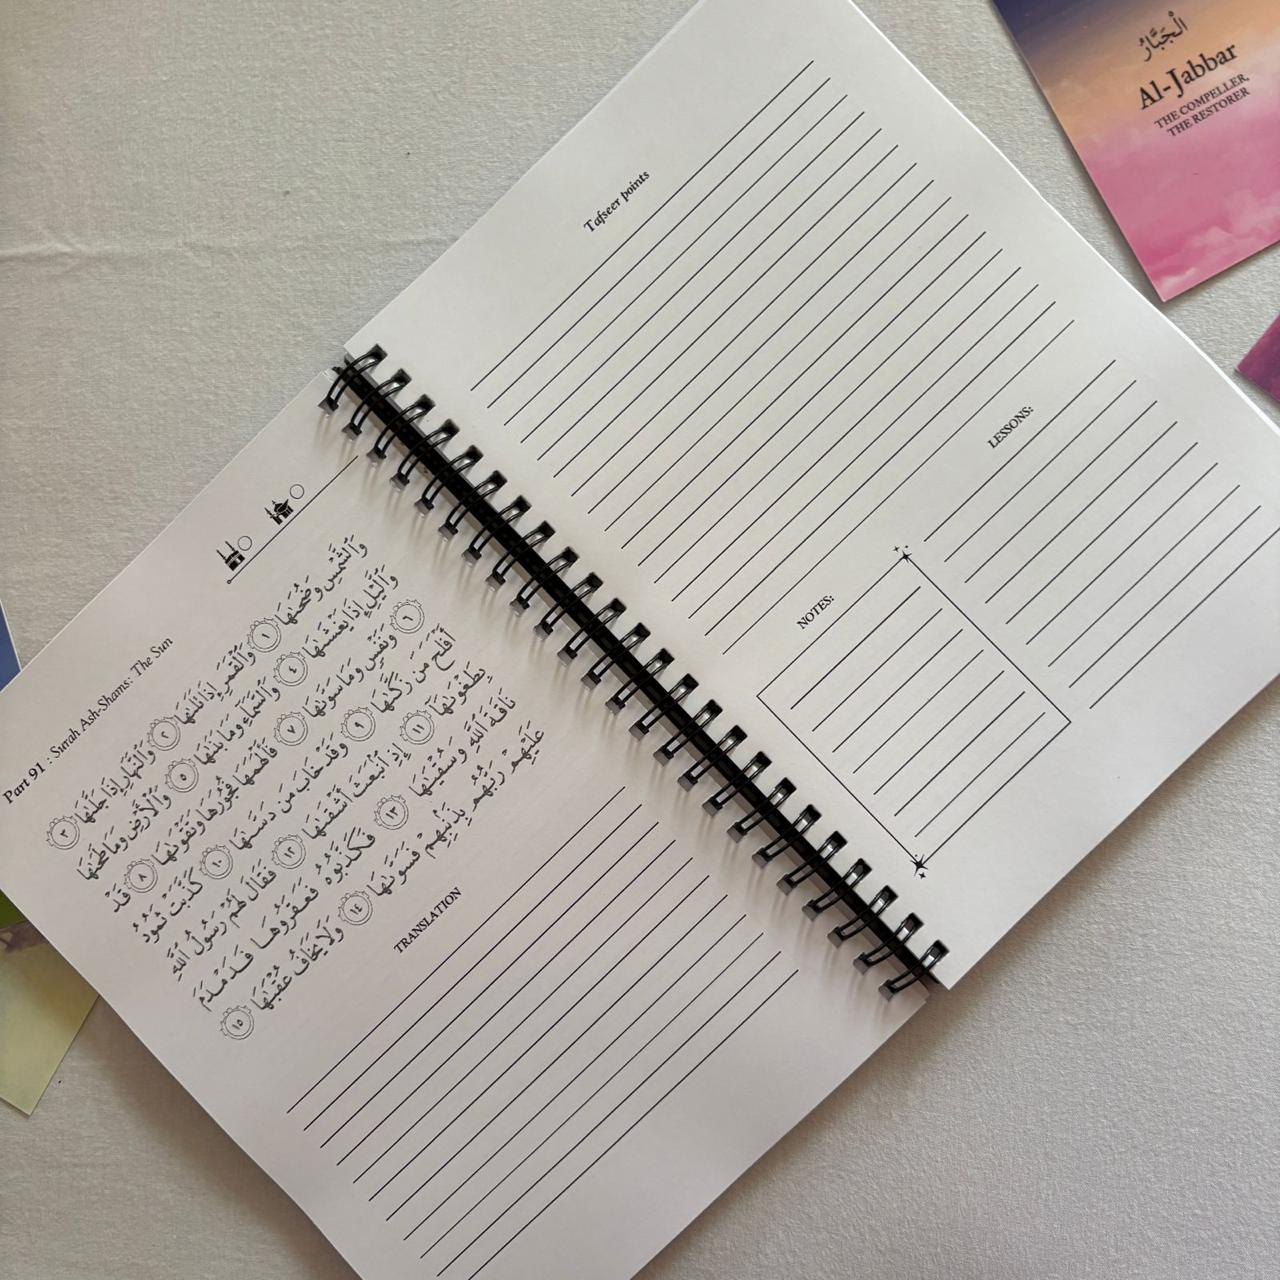 Part 91 : Surah Ash-Shams: The Sun
وَٱلشَّمْسِ وَضُحَىٰهَا ١ وَٱلْقَمَرِ إِذَا تَلَىٰهَا ٢ وَٱلنَّهَارِ إِذَا جَلَّىٰهَا ٣
وَٱلَّيْلِ إِذَا يَغْشَىٰهَا ٤ وَٱلسَّمَآءِ وَمَا بَنَىٰهَا ٥ وَٱلْأَرْضِ وَمَا طَحَىٰهَا
٦ وَنَفْسٍ وَمَا سَوَّىٰهَا ٧ فَأَلْهَمَهَا فُجُورَهَا وَتَقْوَىٰهَا ٨ قَدْ
أَفْلَحَ مَن زَكَّىٰهَا ٩ وَقَدْ خَابَ مَن دَسَّىٰهَا ١٠ كَذَّبَتْ ثَمُودُ
بِطَغْوَىٰهَآ ١١ إِذِ ٱنۢبَعَثَ أَشْقَىٰهَا ١٢ فَقَالَ لَهُمْ رَسُولُ ٱللَّهِ
نَاقَةَ ٱللَّهِ وَسُقْيَٰهَا ١٣ فَكَذَّبُوهُ فَعَقَرُوهَا فَدَمْدَمَ
عَلَيْهِمْ رَبُّهُم بِذَنۢبِهِمْ فَسَوَّىٰهَا ١٤ وَلَا يَخَافُ عُقْبَٰهَا
١٥
TRANSLATION
Tafseer points
LESSONS:
NOTES:
ٱلْجَبَّارُ
Al-Jabbar
THE COMPELLER,
THE RESTORER